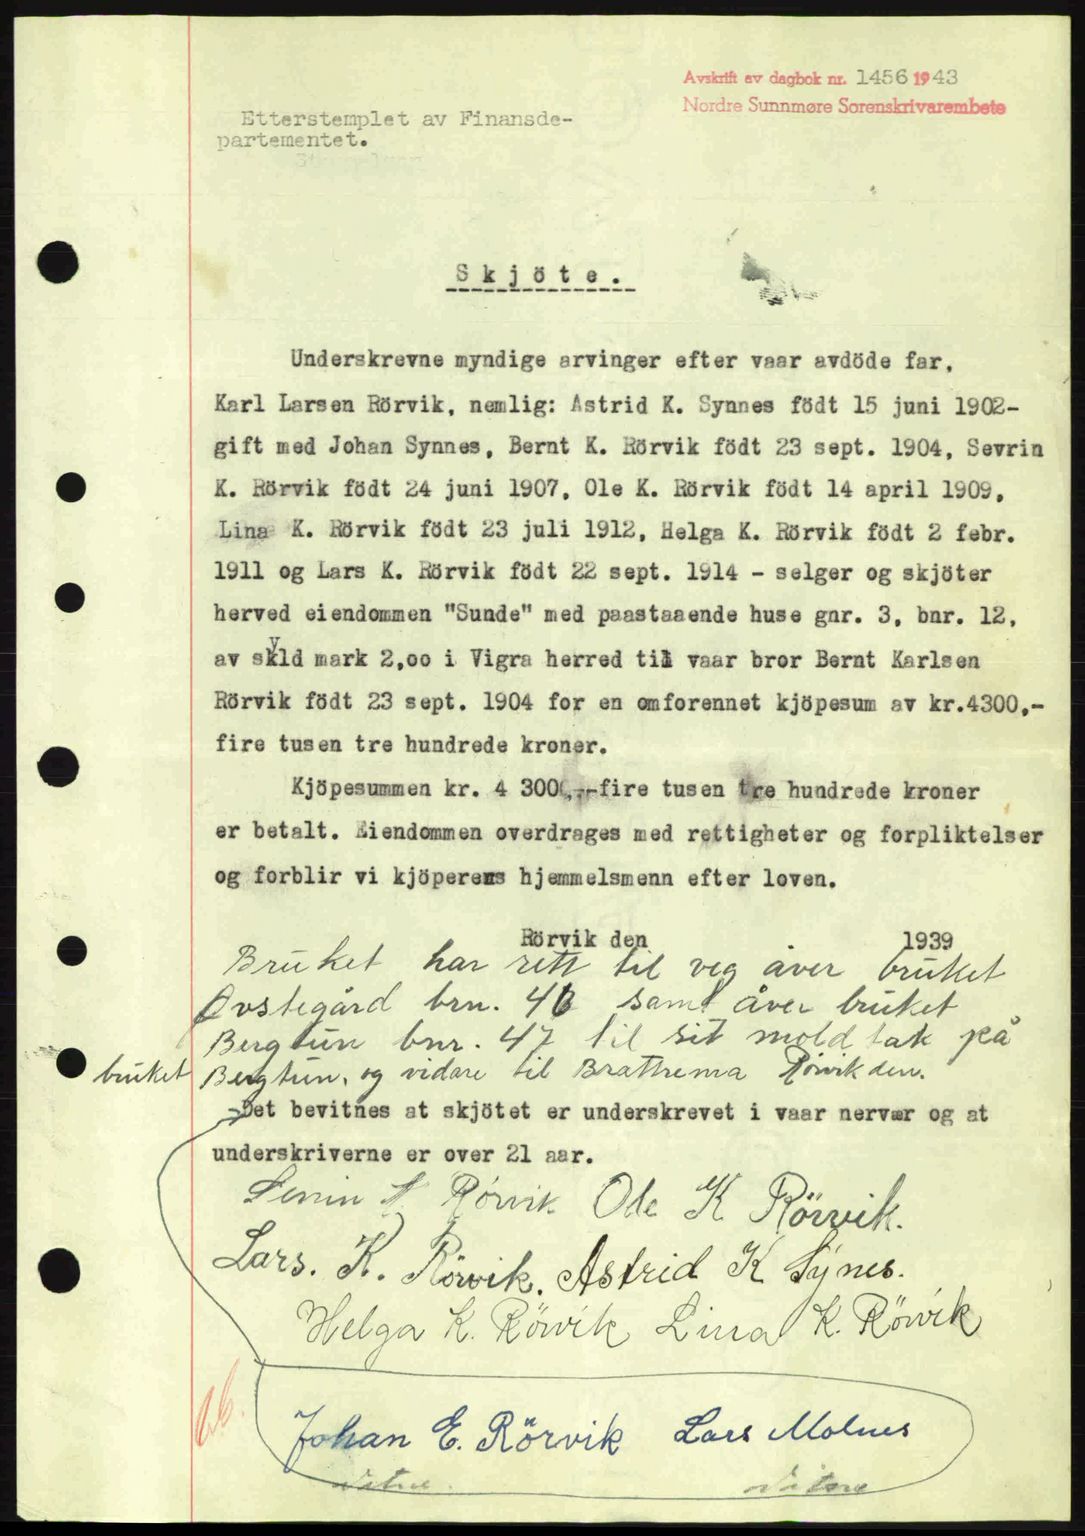 Avskrift av dagbok nr. 1456 1943
Nordre Sunnmøre Sorenskrivarembete
Etterstemplet av Finansde-
partementet.
Skjöte.
Underskrevne myndige arvinger efter vaar avdöde far,
Karl Larsen Rörvik, nemlig: Astrid K. Synnes födt 15 juni 1902-
gift med Johan Synnes, Bernt K. Rörvik födt 23 sept. 1904, Sevrin
K. Rörvik födt 24 juni 1907, Ole K. Rörvik födt 14 april 1909,
Lina K. Rörvik födt 23 juli 1912, Helga K. Rörvik födt 2 febr.
1911 og Lars K. Rörvik födt 22 sept. 1914 - selger og skjöter
herved eiendommen "Sunde" med paastaaende huse gnr. 3, bnr. 12,
av skyld mark 2,oo i Vigra herred til vaar bror Bernt Karlsen
Rörvik födt 23 sept. 1904 for en omforennet kjöpesum av kr.4300,-
fire tusen tre hundrede kroner.
Kjöpesummen kr. 4 300,--fire tusen tre hundrede kroner
er betalt. Eiendommen overdrages med rettigheter og forpliktelser
og forblir vi kjöperens hjemmelsmenn efter loven.
Rörvik den 1939
Bruket har rett til veg åver bruket
Øvstegård brn. 46 samt åver bruket
Bergtun bnr. 47 til sit mold tak på
bruket Bergtun, og vidare til Brattrema Rörvik den.
Det bevitnes at skjötet er underskrevet i vaar nervær og at
underskriverne er over 21 aar.
Sevrin K Rörvik Ole K Rörvik.
Lars. K. Rörvik. Astrid K Synes.
Helga K. Rörvik Lina K. Rörvik
Johan E. Rörvik Lars Molnes
Vitne. Vitne